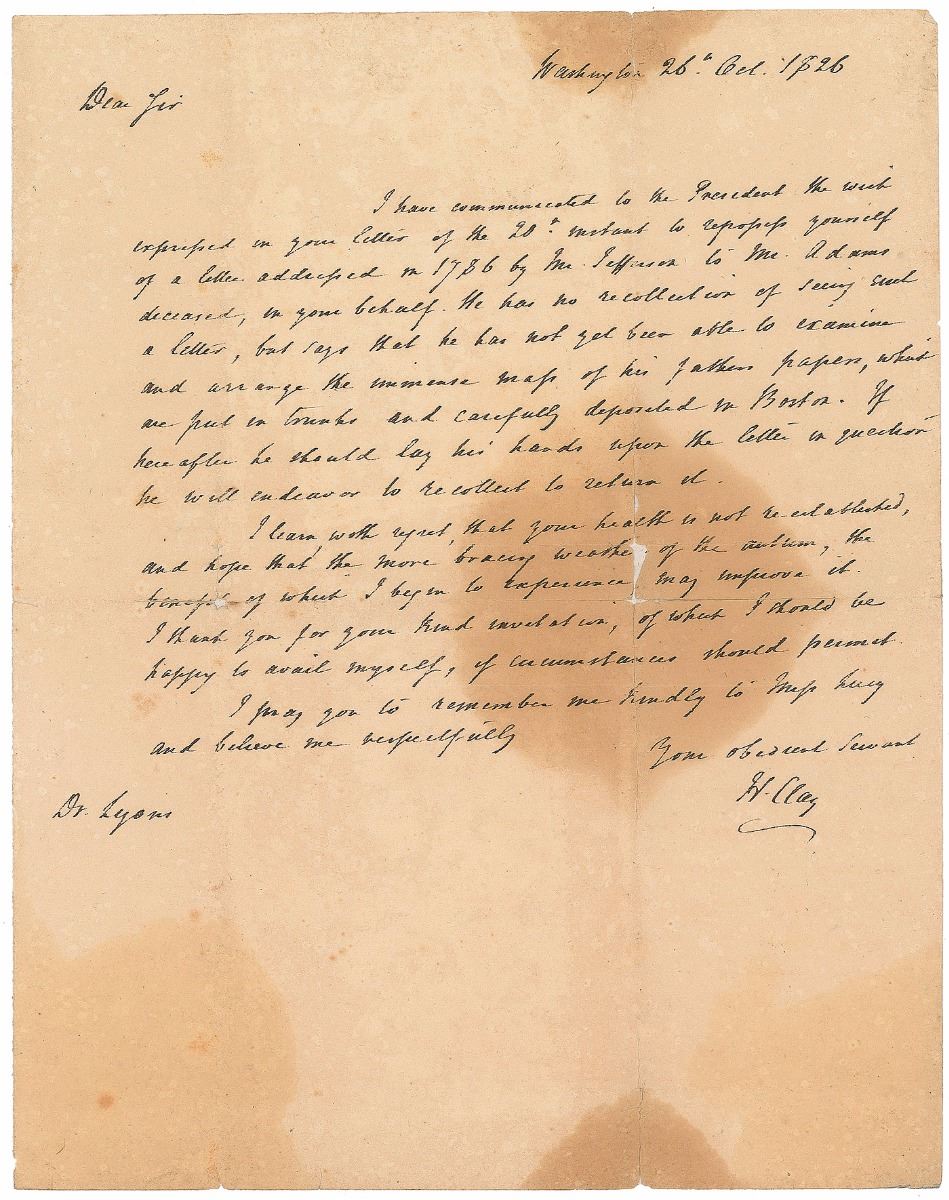 Washington 26th Oct. 1826
Dear Sir
I have communicated to the President the wish
expressed in your letter of the 20th instant to repossess yourself
of a letter addressed in 1786 by Mr. Jefferson to Mr. Adams
deceased, in your behalf. He has no recollection of seeing such
a letter, but says that he has not yet been able to examine
and arrange the immense mass of his fathers papers, which
are put in trunks and carefully deposited in Boston. If
hereafter he should lay his hands upon the letter in question
he will endeavor to recollect to return it.
I learn, with regret, that your health is not re-established,
and hope that the more bracing weather of the autumn, the
benefit of which I begin to experience, may improve it.
I thank you for your kind invitation, of which I should be
happy to avail myself, if circumstances should permit.
I pray you to remember me kindly to Miss Lucy
and believe me respectfully
Your obedient Servant
H. Clay
Dr. Lyons